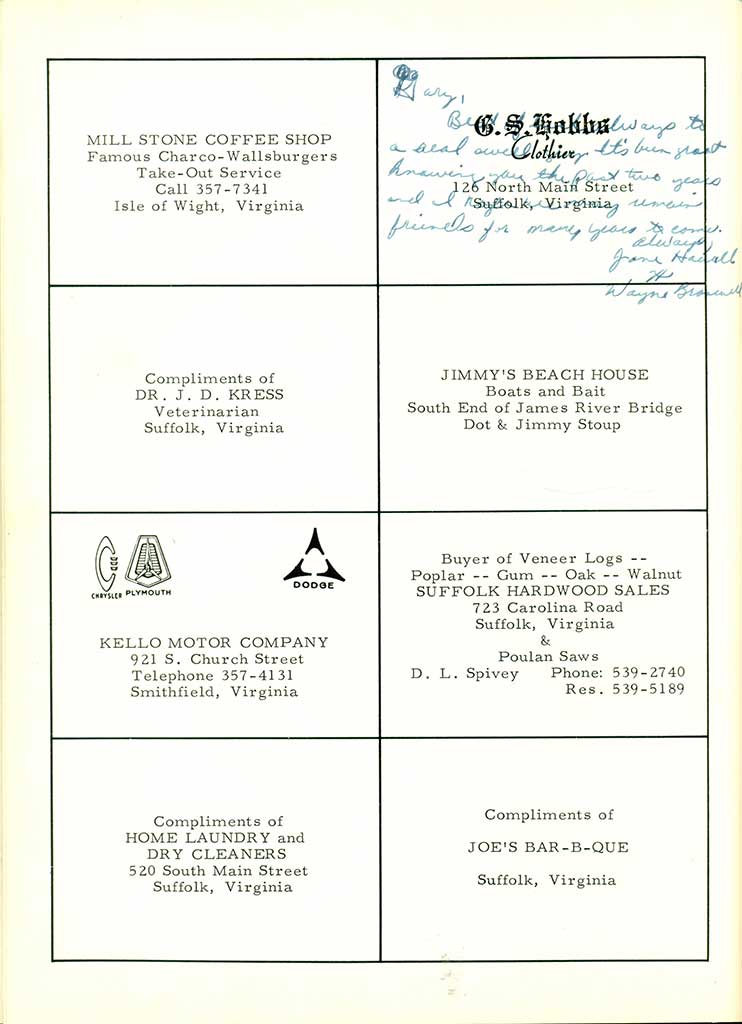 MILL STONE COFFEE SHOP
Famous Charco-Wallsburgers
Take-Out Service
Call 357-7341
Isle of Wight, Virginia
Gary,
Best always to
a real It's been great
knowing you the past two years
and I remain
friends for many years to come.
Always,
Jane
Wayne
G. S. Hobbs
Clothier
126 North Main Street
Suffolk, Virginia
Compliments of
DR. J. D. KRESS
Veterinarian
Suffolk, Virginia
JIMMY'S BEACH HOUSE
Boats and Bait
South End of James River Bridge
Dot & Jimmy Stoup
CHRYSLER PLYMOUTH
DODGE
KELLO MOTOR COMPANY
921 S. Church Street
Telephone 357-4131
Smithfield, Virginia
Buyer of Veneer Logs --
Poplar -- Gum -- Oak -- Walnut
SUFFOLK HARDWOOD SALES
723 Carolina Road
Suffolk, Virginia
&
Poulan Saws
D. L. Spivey Phone: 539-2740
Res. 539-5189
Compliments of
HOME LAUNDRY and
DRY CLEANERS
520 South Main Street
Suffolk, Virginia
Compliments of
JOE'S BAR-B-QUE
Suffolk, Virginia